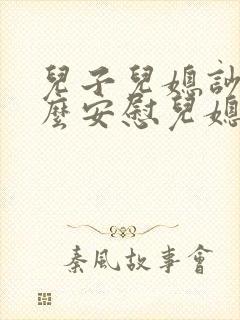 兒子兒媳訠
麼安慰兒媳
秦風故事會